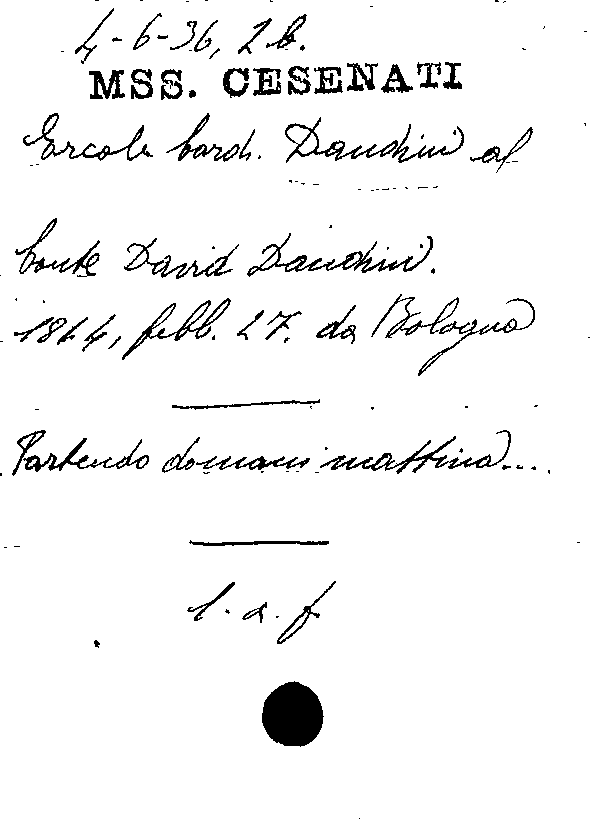 4-6-36, 2b.
MSS. CESENATI
Ercole Card. Dandini al
Conte David Dandini.
1814, febb. 27. da Bologna
Partendo domani mattina....
l. a. f.